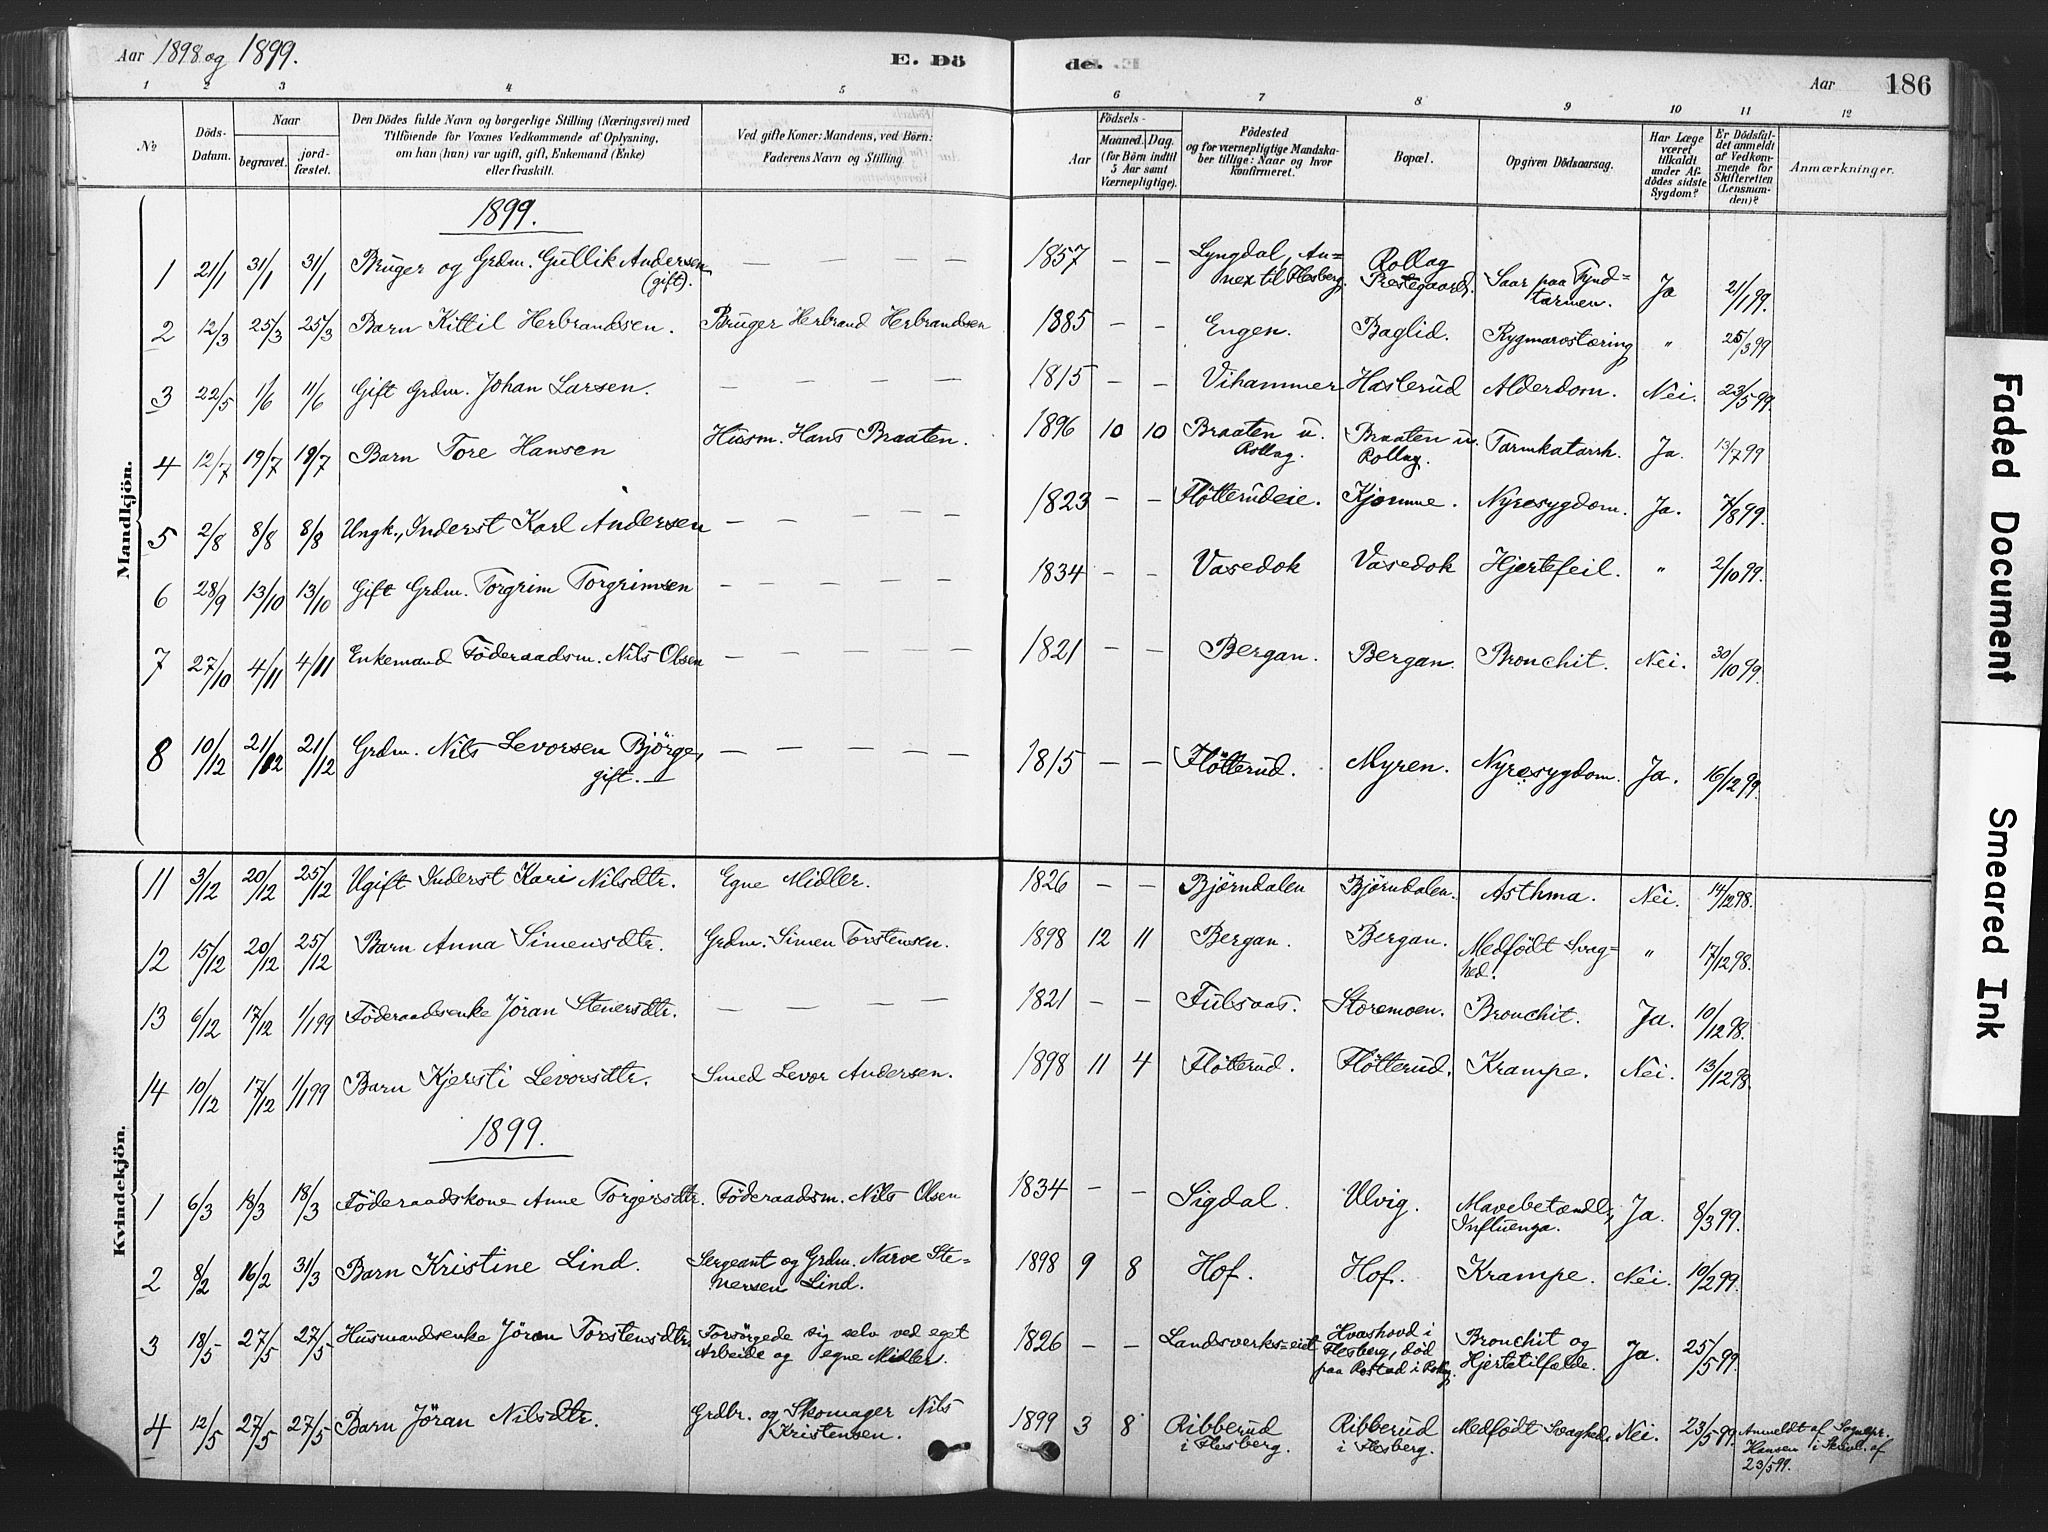 Aar 1898 og 1899. E. Dö de. Aar 186
1 2 3 4 5 6 7 8 9 10 11 12
№ Döds-Datum. Naar begravet. jord-fæstet. Den Dödes fulde Navn og borgerlige Stilling (Næringsvei) med Tilföiende for Voxnes Vedkommende af Oplysning, om han (hun) var ugift, gift, Enkemand (Enke) eller fraskilt. Ved gifte Koner: Mandens, ved Börn: Faderens Navn og Stilling. Aar Födsels- Maaned. Dag. (for Börn indtil 5 Aar samt Værnepligtige). Födested og for værnepligtige Mandskaber tillige: Naar og hvor konfirmeret. Bopæl. Opgiven Dödsaarsag. Har Læge været tilkaldt under Afdödes sidste Sygdom? Er Dödsfaldet anmeldt af Vedkommende for Skifteretten (Lensmanden)? Anmærkninger.
Mandkjön.
1899.
1 21/1 31/1 31/1 Bruger og Grdm. Gullik Andersen (gift). — — — — 1857 — — Lyngdal, Annex til Flesberg. Rollag Prestegaard. Saar paa Tyndtarmen. Ja 21/1 99.
2 12/3 25/3 25/3 Barn Kittil Herbrandsen. Bruger Herbrand Herbrandsen 1885 — — Engen. Baglid. Rygmarvstæring " 25/3 99
3 22/5 1/6 1/6 Gift Grdm. Johan Larsen. — — — — 1815 — — Vihammer Haslerud Alderdom. Nei. 23/5 99.
4 12/7 19/7 19/7 Barn Tore Hansen Husm. Hans Braaten. 1896 10 10 Braaten u. Rollag. Braaten u. Rollag. Tarmkatarrh. Ja. 13/7 99
5 2/8 8/8 8/8 Ungk., Inderst Karl Andersen — — — — 1823 — — Fløtterudeie. Kjomme. Nyresygdom. Ja. 7/8 99.
6 28/9 13/10 13/10 Gift Grdm. Torgrim Torgrimsen — — — — 1834 — — Vasedok Vasedok Hjertefeil. " 2/10 99.
7 27/10 4/11 4/11 Enkemand Föderaadsm. Nils Olsen — — — — 1821 — — Bergan. Bergan. Bronchit. Nei. 30/10 99.
8 10/12 21/12 21/12 Grdm. Nils Levorsen Bjørge, gift. — — — — — 1815 — — Fløtterud. Myren. Nyresygdom. Ja. 16/12 99.
Kvindekjön.
11 3/12 20/12 25/12 Ugift Inderst Kari Nilsdtr. Egne Midler. 1826 — — Bjørndalen Bjørndalen. Asthma. Nei. 14/12 98.
12 15/12 20/12 25/12 Barn Anna Simensdtr. Grdm. Simen Torstensen. 1898 12 11 Bergan. Bergan. Medfödt Svaghed. " 17/12 98.
13 6/12 17/12 1/1 99 Föderaadsenke Jöran Steners­dtr. — — — — 1821 — — Fulsaas. Storemoen. Bronchit. Ja. 10/12 98.
14 10/12 17/12 1/1 99 Barn Kjersti Levorsdtr. Smed Levor Andersen. 1898 11 4 Fløtterud. Fløtterud. Krampe. Nei. 13/12 98.
1899.
1 6/3 18/3 18/3 Föderaadskone Anne Torgersdtr. Föderaadsm. Nils Olsen 1834 — — Sigdal. Ulvig. Mavebetændl., Influenza. Ja. 8/3 99.
2 8/2 16/2 31/3 Barn Kristine Lind. Sergeant og Grdm. Narve Stenersen Lind. 1898 9 8 Hof. Hof. Krampe. Nei. 10/2 99.
3 18/5 27/5 27/5 Husmandsenke Jöran Torstensdtr. Forsörgede sig selv ved eget Arbeide og egne Midler. 1826 — — Landsverks=eiet Hvashovd i Flesberg, død paa Rostad i Rollag Bronchit og Hjertetilfælde. Ja. 25/5 99.
4 12/5 27/5 27/5 Barn Jöran Nilsdtr. Grdbr. og Skomager Nils Kristensen. 1899 3 8 Ribberud i Flesberg. Ribberud i Flesberg. Medfödt Svaghed. Nei. 23/5 99. Anmeldt af Sognepr. Hansen i Skriv. af 23/5 99.
Faded Document
Smeared Ink